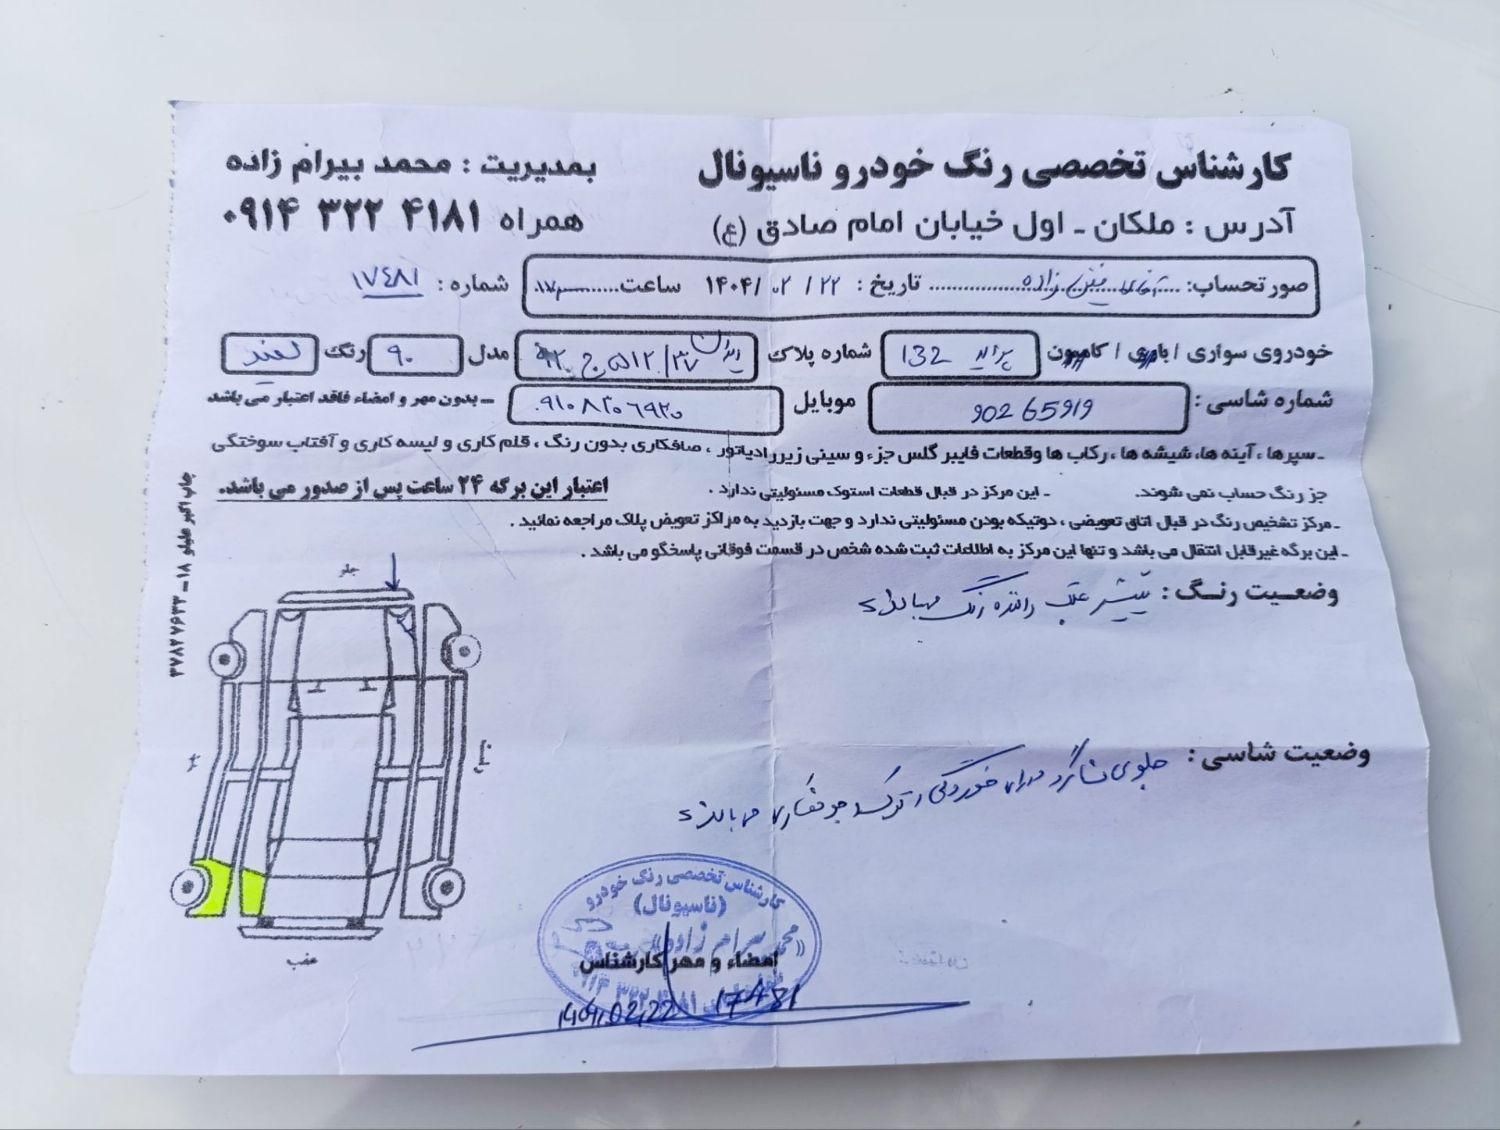 کارشناس تخصصی رنگ خودرو ناسیونال
بمدیریت : محمد بیرام زاده
آدرس : ملکان ـ اول خیابان امام صادق (ع)
همراه ۰۹۱۴ ۳۲۲ ۴۱۸۱
صورتحساب: آقای ... زاده تاریخ : ۱۴۰۴/۰۲/۲۲ ساعت
شماره : ۱۷۴۸۱
خودروی سواری / باری / کامیون پراید 132 شماره پلاک ایران مدل ۹۰ رنگ سفید
شماره شاسی : 90265919 موبایل ۰۹۱۰۸۲۰۶۹۲۰ ـ بدون مهر و امضاء فاقد اعتبار می باشد
ـ سپرها ، آینه ها، شیشه ها ، رکاب ها وقطعات فایبر گلس جزء و سینی زیررادیاتور ، صافکاری بدون رنگ ، قلم کاری و لیسه کاری و آفتاب سوختگی
جز رنگ حساب نمی شوند. ـ این مرکز در قبال قطعات استوک مسئولیتی ندارد . اعتبار این برگه ۲۴ ساعت پس از صدور می باشد.
ـ مرکز تشخیص رنگ در قبال اتاق تعویضی ، دوتیکه بودن مسئولیتی ندارد و جهت بازدید به مراکز تعویض پلاک مراجعه نمائید .
ـ این برگه غیرقابل انتقال می باشد و تنها این مرکز به اطلاعات ثبت شده شخص در قسمت فوقانی پاسخگو می باشد .
وضعیت رنگ : عقب راننده رنگ میباشد
وضعیت شاسی : جلوی شاگرد خوردگی میباشد
جلو
عقب
کارشناس تخصصی رنگ خودرو
(ناسیونال)
«محمد بیرام زاده»
امضاء و مهر کارشناس
17481
۱۴۰۴,02,22